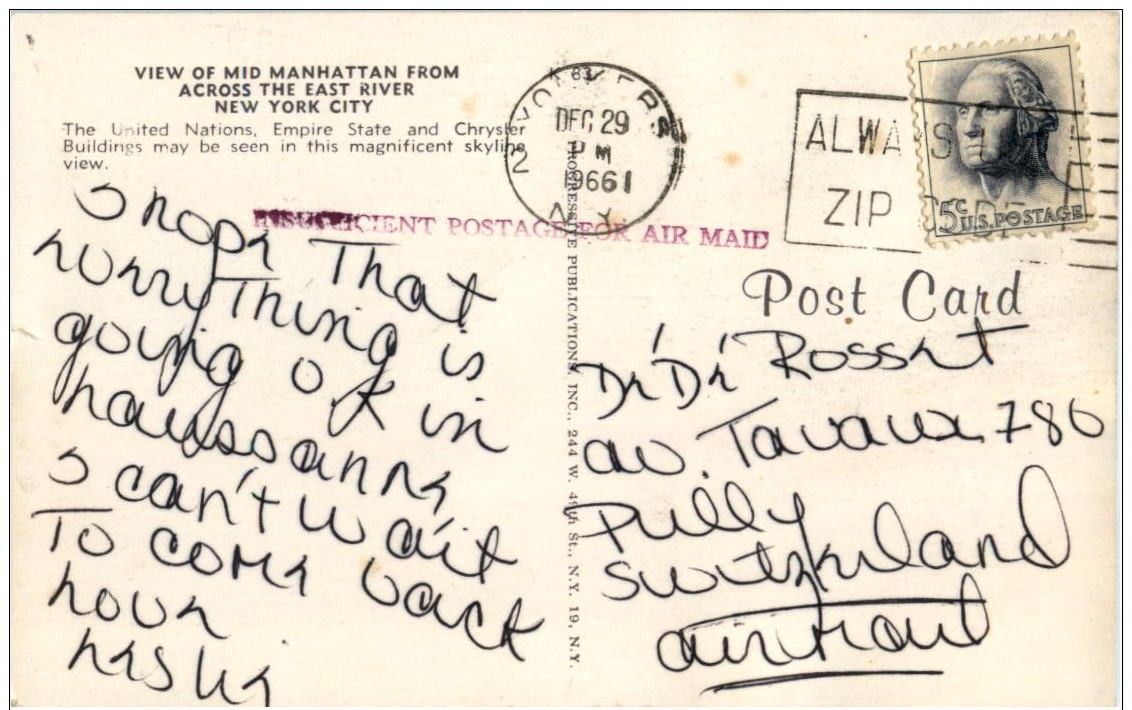 VIEW OF MID MANHATTAN FROM
ACROSS THE EAST RIVER
NEW YORK CITY
The United Nations, Empire State and Chrysler
Buildings may be seen in this magnificent skyline
view.
INSUFFICIENT POSTAGE FOR AIR MAIL
I hope That
everything is
going OK in
Laussanne,
I can't wait
To come back
Love
Leslie
PROGRESSIVE PUBLICATIONS, INC., 244 W. 49th St., N.Y. 19, N.Y.
YONKERS
83
DEC 29
PM
1966
N.Y.
2
ALWAYS
ZIP CODE
5c U.S. POSTAGE
Post Card
De'De' Rosset
av. Tavaux 786
Pully
Switzerland
airmail